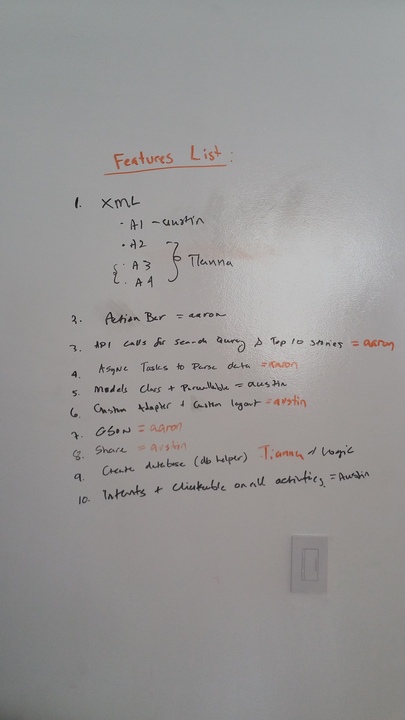 Features List:
1. XML
· A1 - austin
· A2
· A3 } Tianna
· A4
2. Action Bar = aaron
3. API calls for search query & Top 10 stories = aaron
4. Async Tasks to Parse data = aaron
5. Models Class + Parcellable = austin
6. Custom Adapter + Custom layout = austin
7. GSON = aaron
8. Share = austin
9. Create database (db helper) Tianna / Logic
10. Intents + Clickable on all activities = Austin